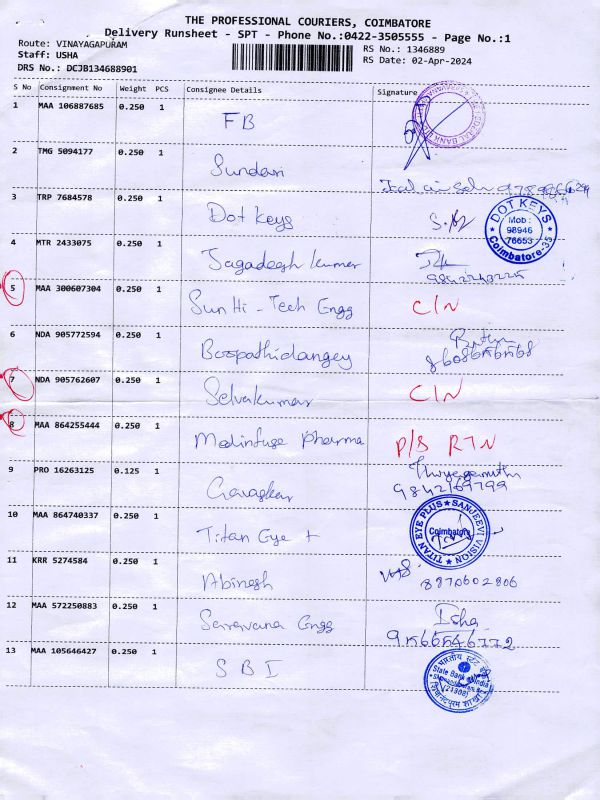 THE PROFESSIONAL COURIERS, COIMBATORE
Delivery Runsheet - SPT - Phone No.:0422-3505555 - Page No.:1
Route: VINAYAGAPURAM
Staff: USHA
DRS No.: DCJB134688901
RS No.: 1346889
RS Date: 02-Apr-2024
S No Consignment No Weight PCS Consignee Details Signature
1 MAA 106887685 0.250 1 FB
2 TMG 5094177 0.250 1 Sundari
3 TRP 7684578 0.250 1 Dot Keys
DOT KEYS
Mob:
98946
76653
Coimbatore-35
4 MTR 2433075 0.250 1 Jagadeesh kumar
5 MAA 300607304 0.250 1 Sun Hi-Tech Engg C/N
6 NDA 905772594 0.250 1
7 NDA 905762607 0.250 1 Selvakumar C/N
8 MAA 864255444 0.250 1 Medinfuse Pharma P/S RTN
9 PRO 16263125 0.125 1
9842169799
10 MAA 864740337 0.250 1 Titan Eye +
TITAN EYE PLUS SANJEEVI VISION
Coimbatore
11 KRR 5274584 0.250 1 Abinesh
8870602806
12 MAA 572250883 0.250 1 Saravana Engg Isha
9566546772
13 MAA 105646427 0.250 1 SBI
भारतीय स्टेट बैंक
State Bank of India
(21808)